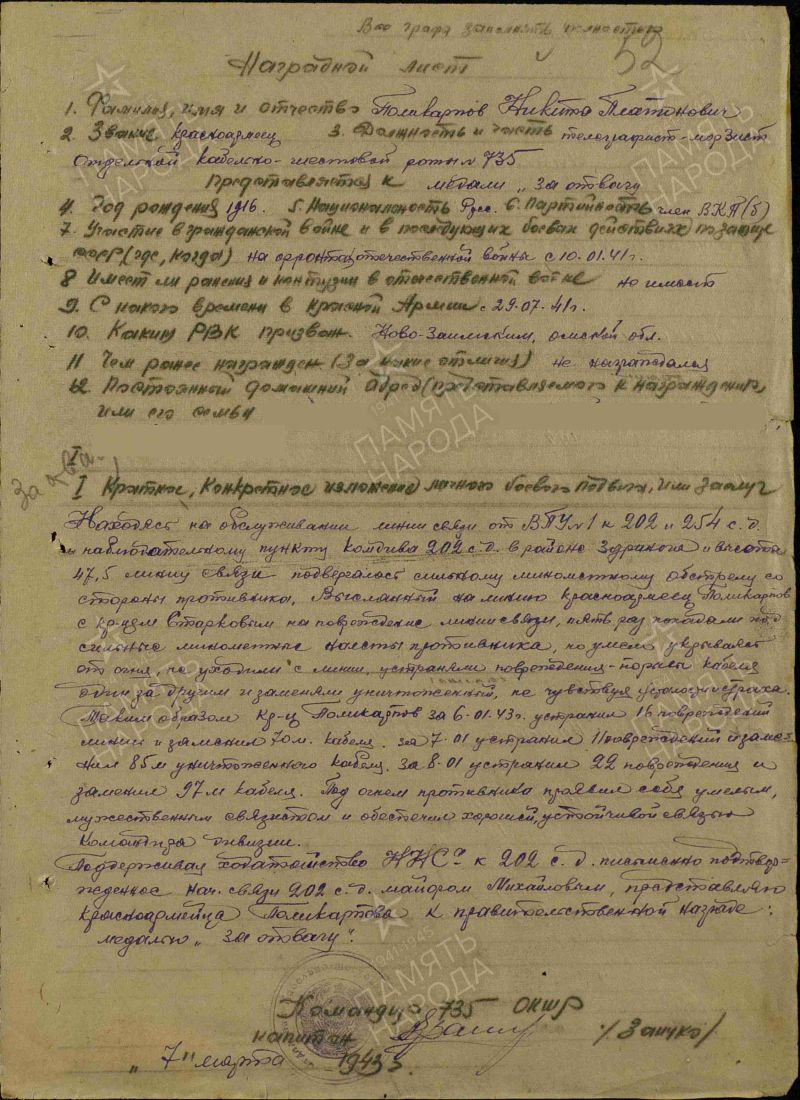 Все графы заполнять полностью
52
Наградной лист
1. Фамилия, имя и отчество Поликарпов Никита Платонович
2. Звание красноармеец 3. Должность и часть телеграфист-морзист
Отдельной кабельно-шестовой роты № 735
Представляется к медали „За отвагу
4. Год рождения 1916. 5. Национальность Русс. 6. Партийность член ВКП(б)
7. Участие в гражданской войне и в последующих боевых действиях по защите
СССР (где, когда) на фронтах отечественной войны с 10.01.41г.
8 Имеет ли ранения и контузии в отечественной войне не имеет
9. С какого времени в Красной Армии с 29-07-41г.
10. Каким РВК призван Ново-Заимским, омской обл.
11 Чем ранее награжден (за какие отличия) не награждался
12. Постоянный домашний адрес (представляемого к награждению,
или его семьи
I
За отва.
I Краткое, конкретное изложение личного боевого подвига, или заслуг
Находясь на обслуживании линии связи от ВПУ№1 к 202 и 254 с.д.
и наблюдательному пункту комдива 202 с.д. в районе и высота
47,5 линия связи подвергалась сильному минометному обстрелу со
стороны противника, Высланный на линию красноармеец Поликарпов
с кр-цем Старковым на повреждение линии связи, пять раз попадали под
сильные минометные налеты противника, но умело укрываясь
от огня, не уходили с линии, устраняли повреждения-порывы кабеля
один за другим и заменяли уничтоженный, не чувствуя усталости и страха.
Таким образом кр-ц Поликарпов за 6-01.43г. устранил 16 повреждений
линии и заменил 70 м. кабеля. за 7-01 устранил 11 повреждений и заме-
нил 85м уничтоженного кабеля. За 8-01 устранил 22 повреждения и
заменил 97м кабеля. Под огнем противника проявил себя умелым,
мужественным связистом и обеспечил хорошей, устойчивой связью
командира дивизии.
Поддерживая ходатайство ННС к 202 с.д. письменно подтвер-
жденное нач. связи 202 с.д. майором Михайловым, представляю
красноармейца Поликарпова к правительственной награде:
медалью „За отвагу".
Командир 735 ОКШР
капитан /Заичко/
„7" марта 1943г.
ПАМЯТЬ НАРОДА